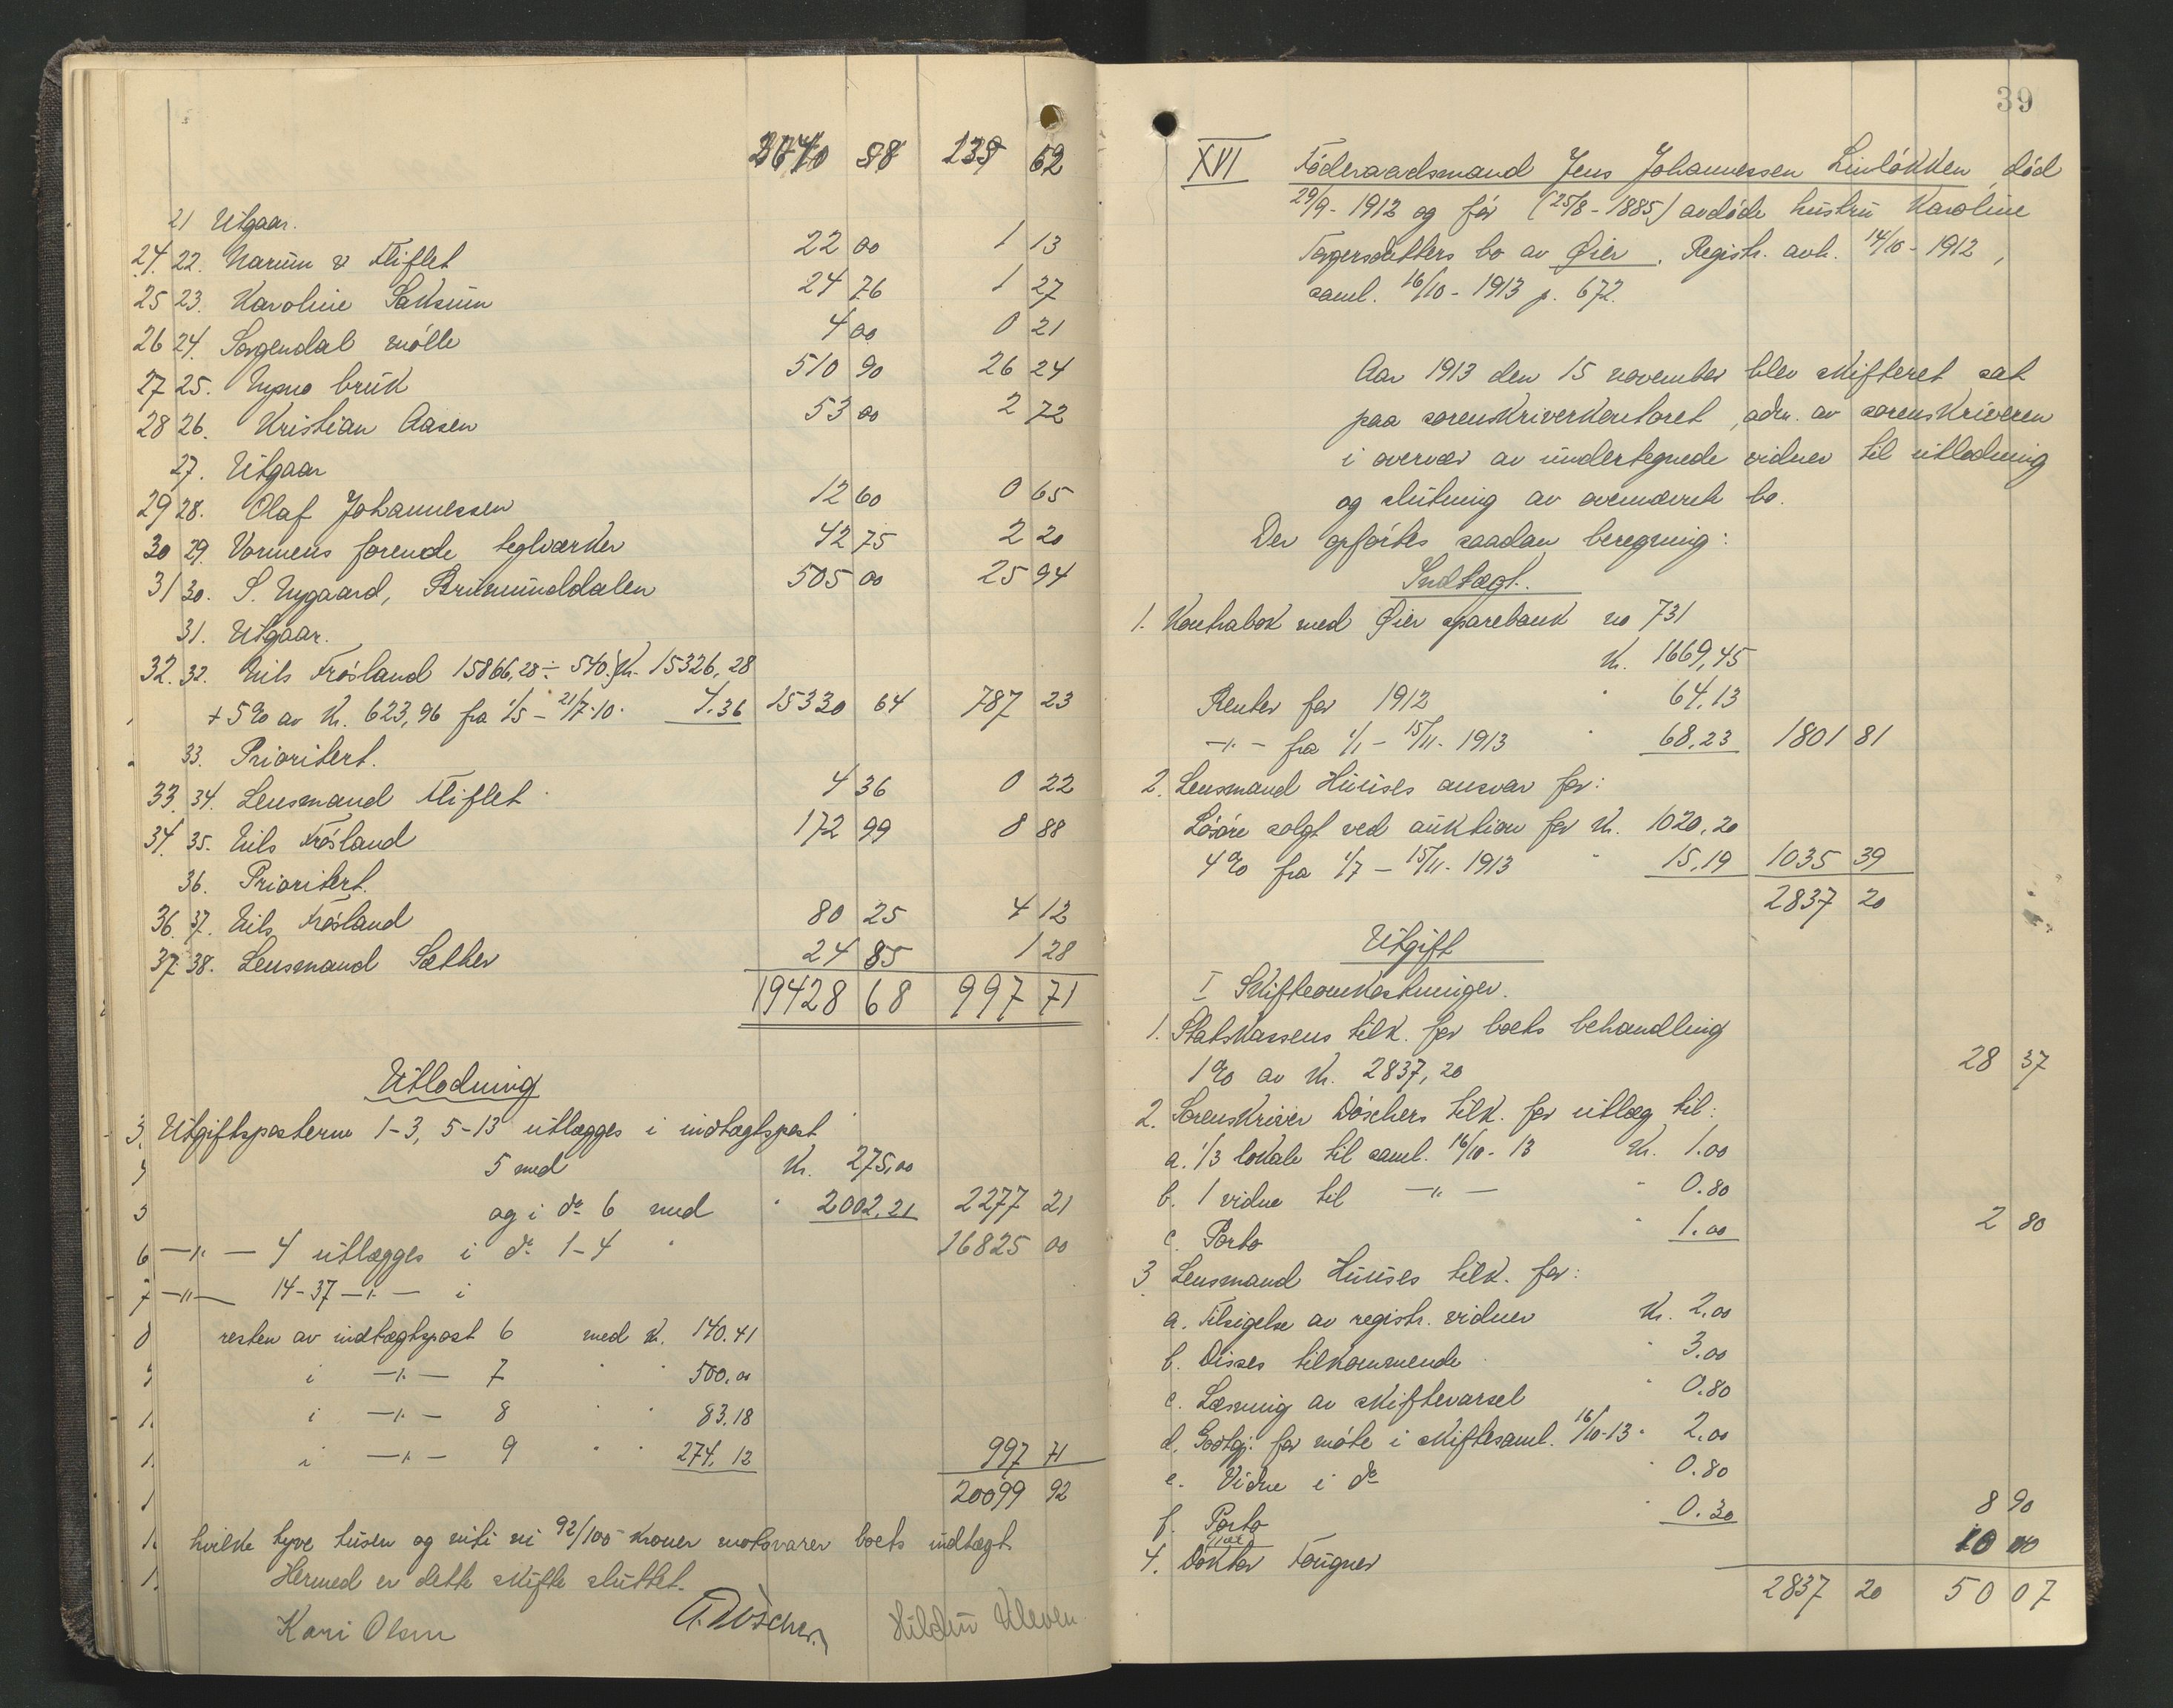 2640 98 135 62
21 Utgaar.
24. 22. Narum & Fliflet 22 00 1 13
25 23. Karoline Saksum 24 76 1 27
26 24. Sorgendal mølle 4 00 0 21
27 25. Mysna bruk 510 90 26 24
28 26. Kristian Aasen 53 00 2 72
27. Utgaar
29 28. Olaf Johannessen 12 60 0 65
30 29. Vormens forende teglværker 42 75 2 20
31 30. S. Nygaard, Brumunddalen 505 00 25 94
31. Utgaar.
32. 32. Nils Frøsland 15866,28 ÷ 540.} Kr. 15326,28
+ 5% av Kr. 623,96 fra 1/5 - 21/7-10. 4.36 15330 64 787 23
33. Prioritert.
33. 34. Lensmand Fliflet 4 36 0 22
34. 35. Nils Frøsland 172 99 8 88
36. Prioritert.
36. 37. Nils Frøsland 80 25 4 12
37. 38. Lensmand Sæther 24 85 1 28
19428 68 997 71
Utlodning
Utgiftsposterne 1-3, 5-13 utlægges i indtægtspost
5 med Kr. 275,00
og i do 6 med " 2002.21 2277 21
—"— 4 utlægges i do 1-4 " 16825 00
—"— 14-37 —"— i
resten av indtægtspost 6 med Kr. 140.41
i —"— 7 " " 500,00
i —"— 8 " " 83.18
i —"— 9 " " 274.12 997 71
20099 92
hvilke tyve tusen og niti ni 92/100 kroner motsvarer boets indtægt.
Hermed er dette skifte sluttet.
Kari Olsen A. Døscher. Hildur Kleven
39
XVI Føderaadsmand Jens Johannessen Linløkken, død
29/9-1912 og før (25/8-1885) avdøde hustru Karoline
Torgersdatters bo av Øier. Registr. avh. 14/10-1912,
saml. 16/10-1913 p. 672.
Aar 1913 den 15 november blev skifteret sat
paa sorenskriverkontoret, adm. av sorenskriveren
i overvær av undertegnede vidner til utlodning
og slutning av ovennævnte bo.
Der opførtes saadan beregning:
Indtægt.
1. Kontrabok med Øier sparebank no 731
Kr. 1669,45
Renter for 1912 " 64.13
—"— fra 1/1 - 15/11-1913 " 68.23 1801 81
2. Lensmand Huuses ansvar for:
Løsøre solgt ved auktion for Kr. 1020.20
4% fra 1/7 - 15/11-1913 " 15,19 1035 39
2837 20
Utgift
I Skifteomkostninger.
1. Statskassens tilk. for boets behandling
1% av Kr. 2837,20 28 37
2. Sorenskriver Døschers tilk. for utlæg til:
a. 1/3 lokale til saml. 16/10-13 Kr. 1.00
b. 1 vidne til —"— " 0.80
c. Porto " 1.00 2 80
3 Lensmand Huuses tilk. for:
a. Tilsigelse av registr. vidner Kr. 2.00
b. Disses tilkommende " 3.00
c. Læsning av skiftevarsel " 0.80
d. Godtgj. for møte i skiftesaml. 16/10-13 " 2.00
e. Vidne i do " 0.80
f. Porto " 0.30 8 90
4. Doktor Fougner 10 00
2837 20 50 07